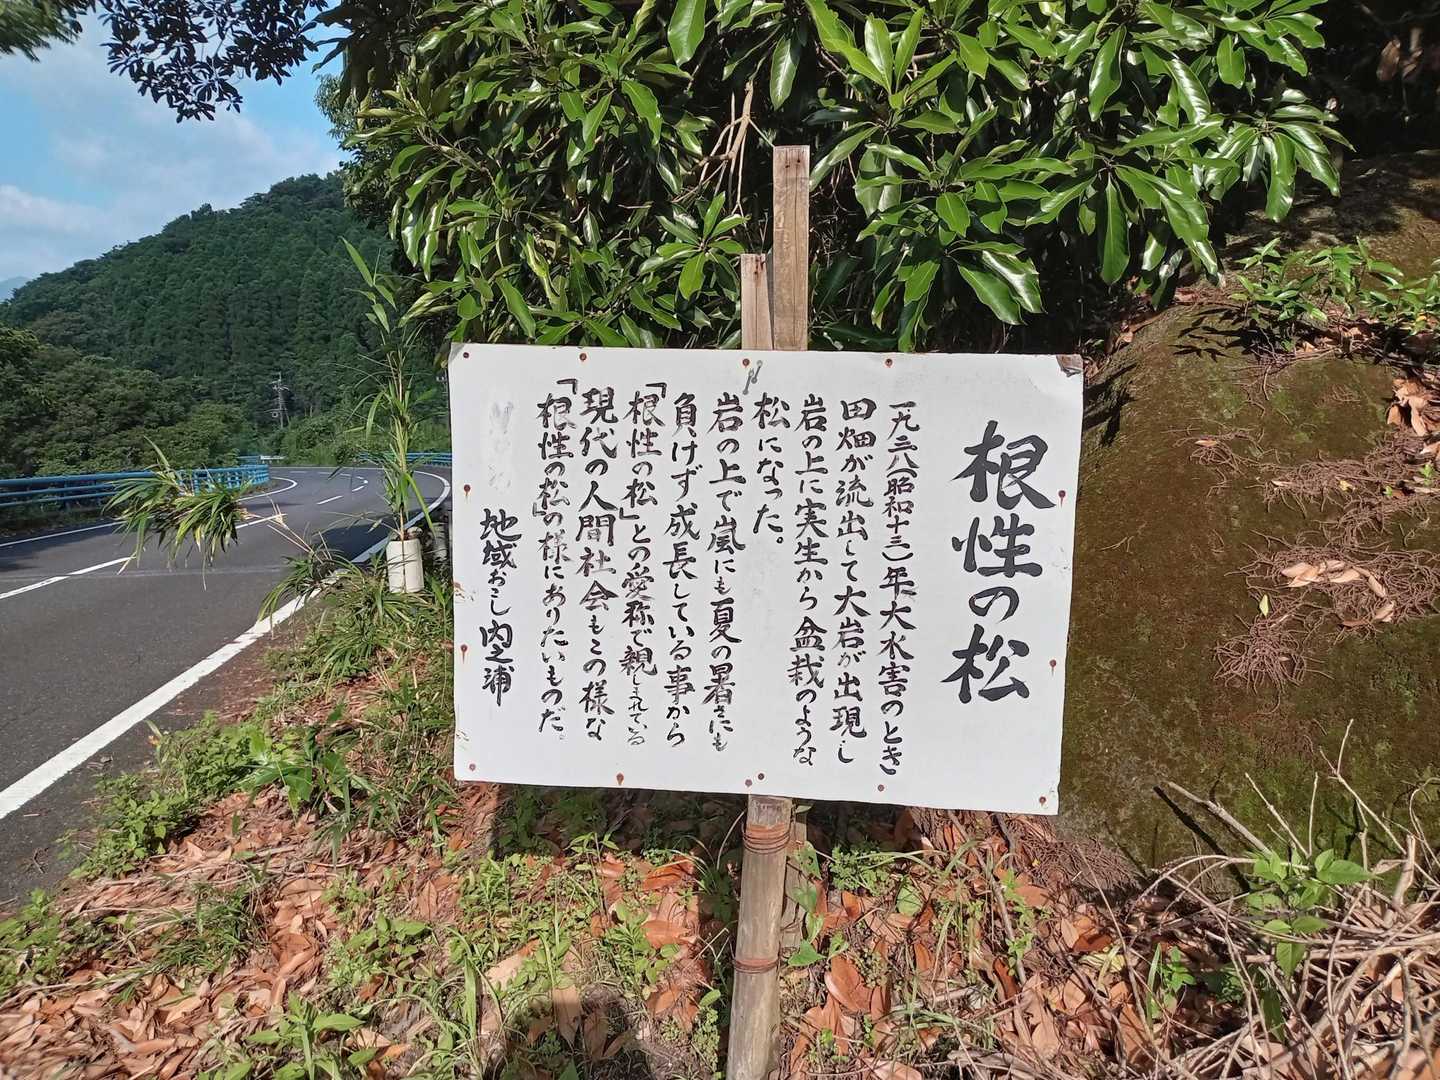 根性の松
一九三八(昭和十三)年大水害のとき
田畑が流出して大岩が出現し
岩の上に実生から盆栽のような
松になった。
岩の上で嵐にも夏の暑さにも
負けず成長している事から
「根性の松」との愛称で親しまれている
現代の人間社会もこの様な
「根性の松」の様にありたいものだ。
地域おこし内之浦